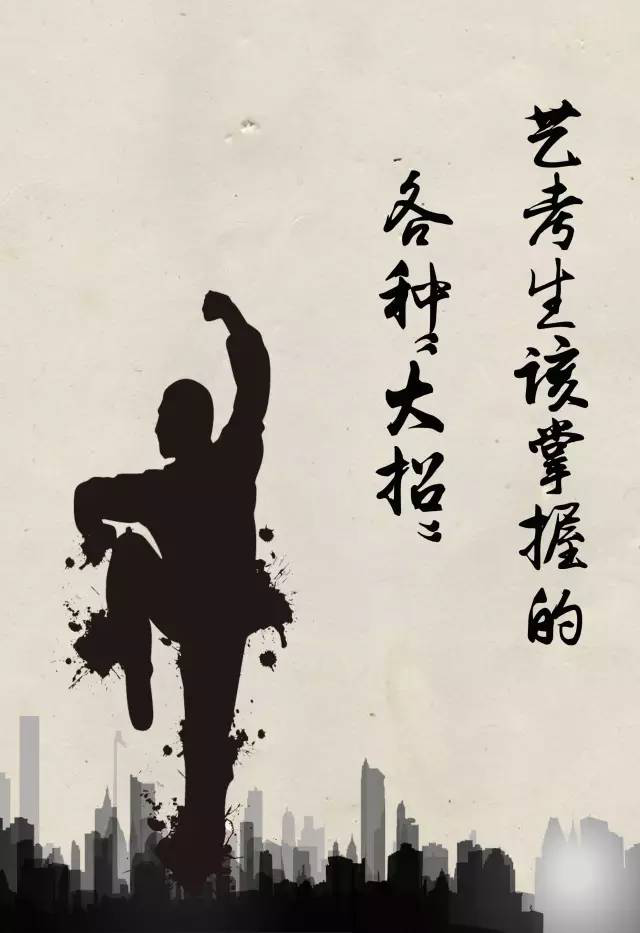 艺考生该掌握的
各种“大招”